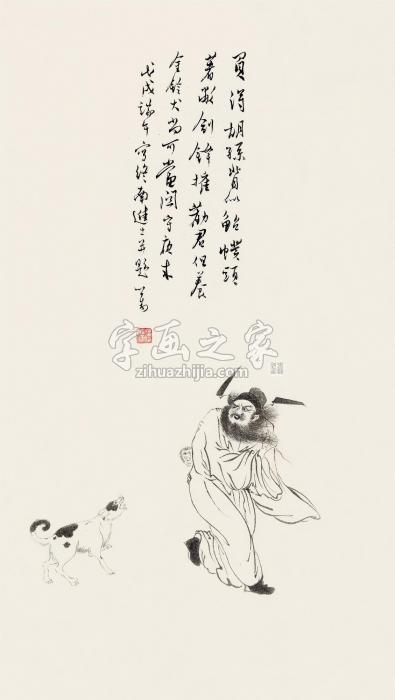 買得胡孫背似鮐幞頭
著敝劍鋒摧勸君但養
金鈴犬尚可當關守夜來
戊戌端午寫終南進士并題 心畬
字画之家
zihuazhijia.com